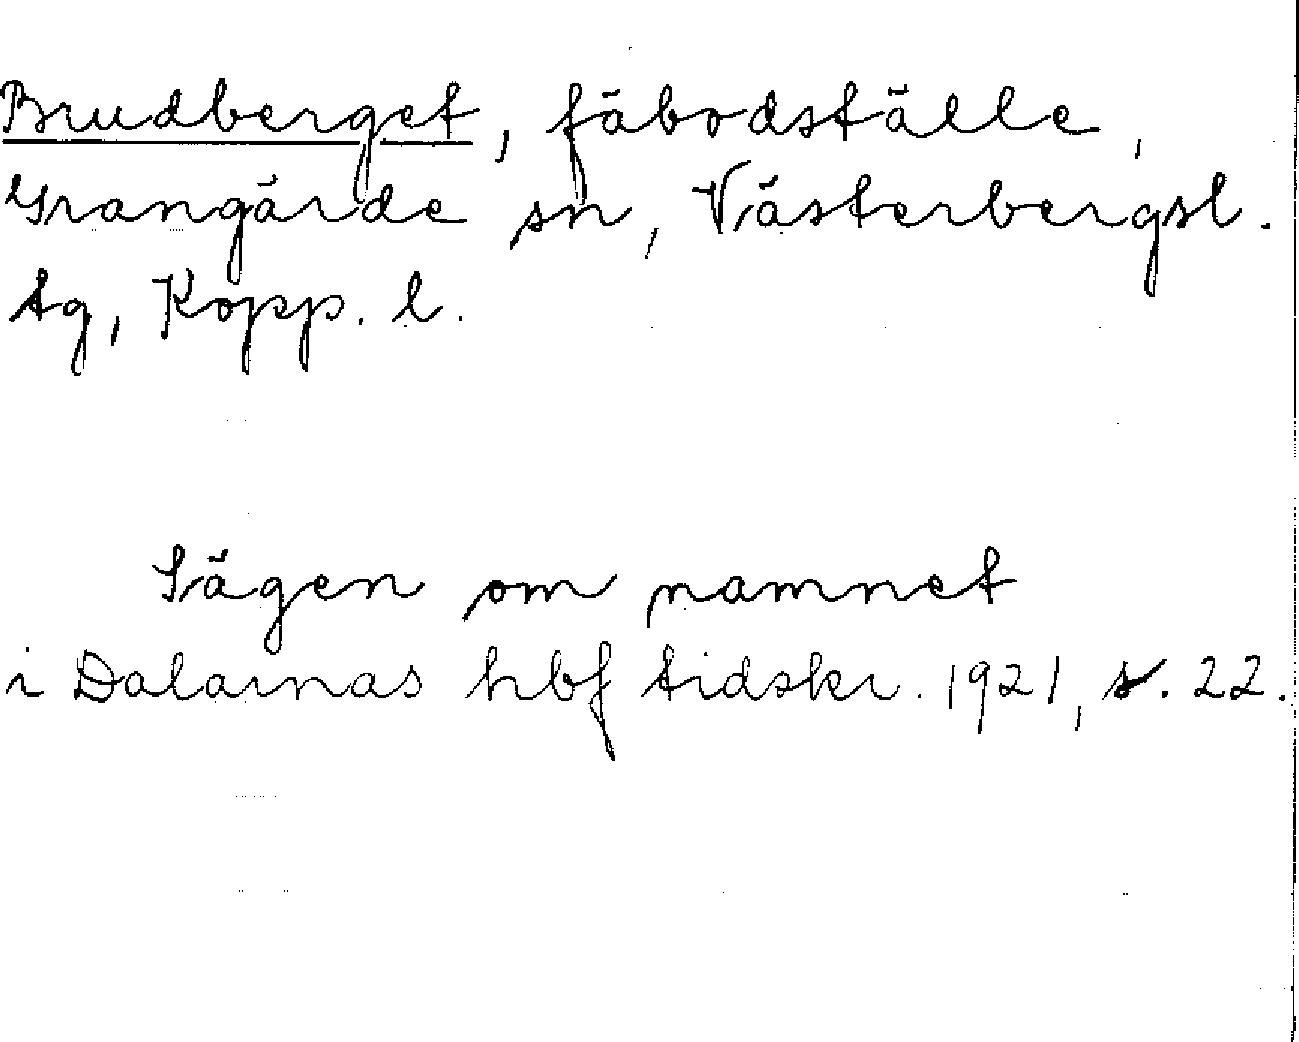 Brudberget, fäbodställe,
Grangärde sn, Västerbergsl.
tg, Kopp. l.
Sägen om namnet
i Dalarnas hbf tidskr. 1921, s. 22.